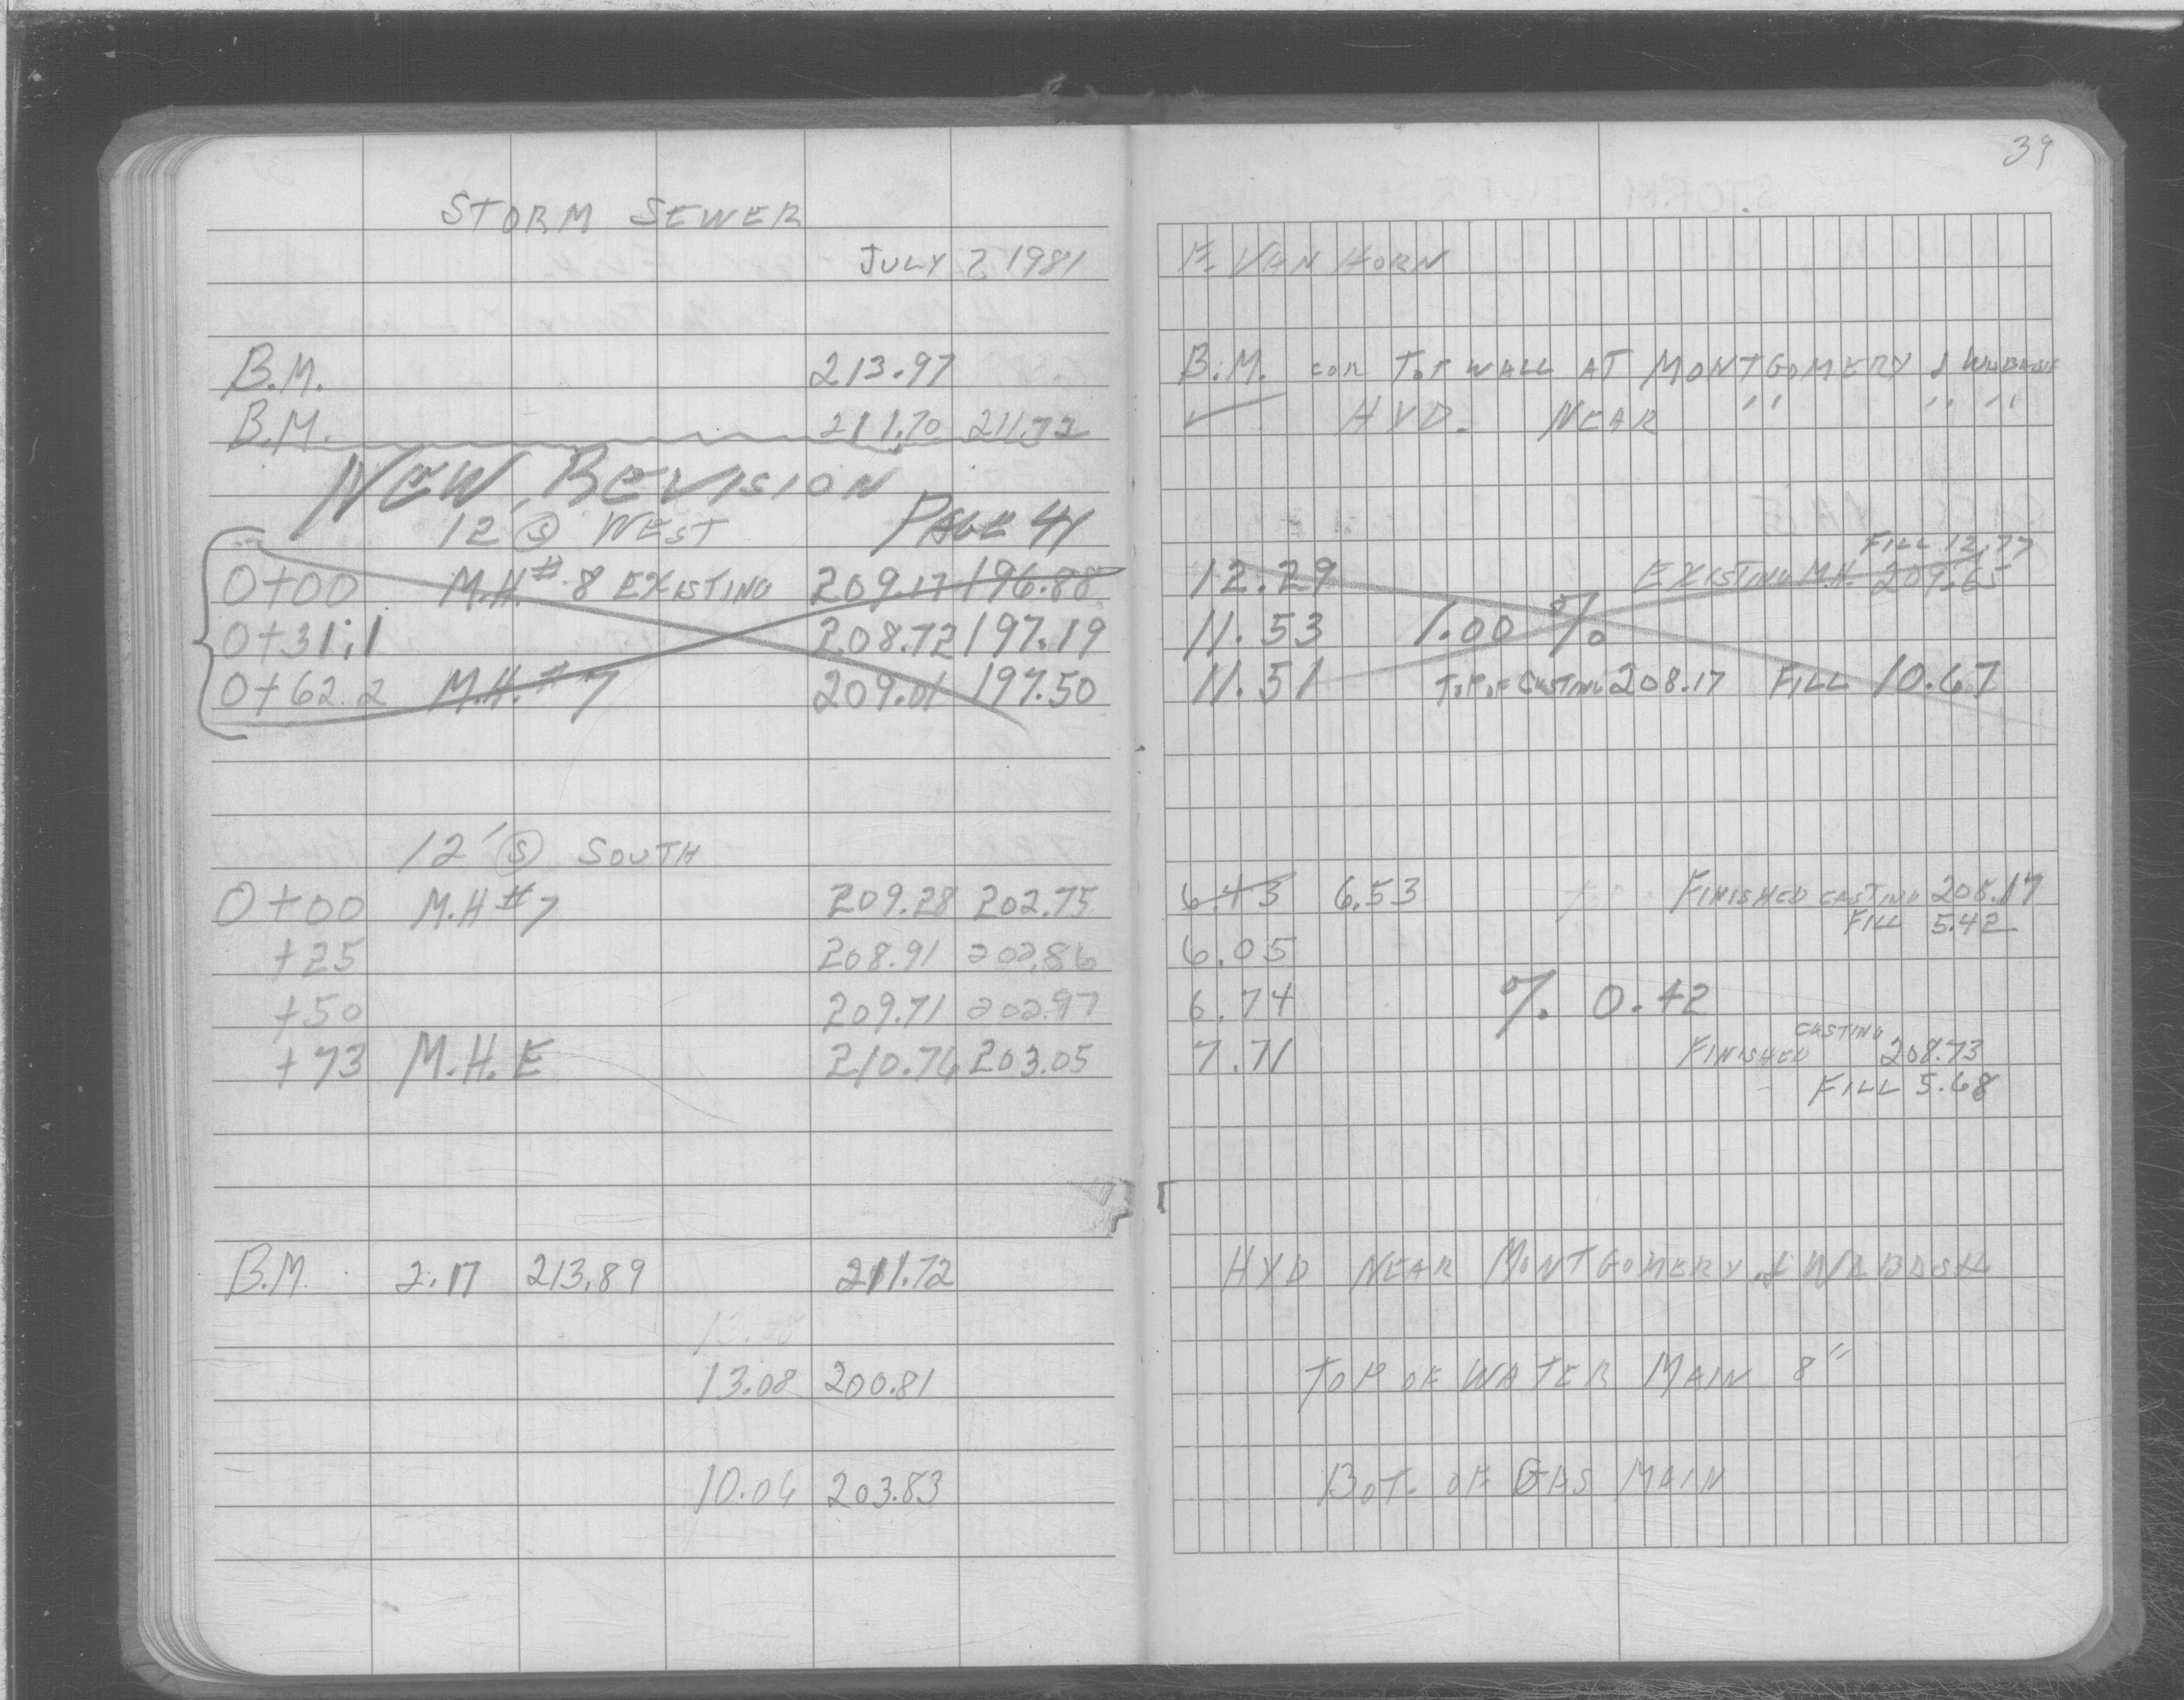 39
STORM SEWER
JULY 2 1981 F. VAN HORN
B.M. 213.97 B.M. COR TOP WALL AT MONTGOMERY & WABASH
B.M. 211.70 211.72 ✓ HYD. NEAR '' '' ''
NEW REVISION
12' Ⓢ WEST PAGE 41
FILL 12.77
0+00 M.H.# 8 EXISTING 209.17 196.88 12.29 EXISTING M.H. 209.65
0+31.1 208.72 197.19 11.53 1.00 %
0+62.2 M.H.# 7 209.01 197.50 11.51 TOP OF CASTING 208.17 FILL 10.67
12' Ⓢ SOUTH
0+00 M.H #7 209.28 202.75 6.43 6.53 FINISHED CASTING 208.17
FILL 5.42
+25 208.91 202.86 6.05
+50 209.71 202.97 6.74 % 0.42
CASTING
+73 M.H.E 210.76 203.05 7.71 FINISHED 208.73
FILL 5.68
B.M. 2.17 213.89 211.72 HYD NEAR MONTGOMERY & WABASH
13.08 200.81 TOP OF WATER MAIN 8"
10.06 203.83 BOT. OF GAS MAIN